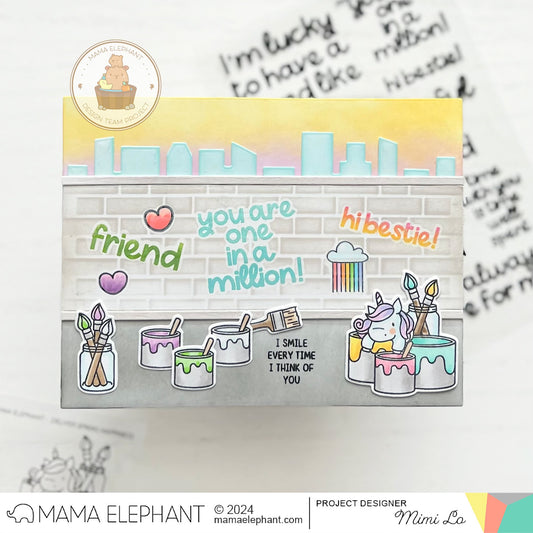 MAMA ELEPHANT
DESIGN TEAM PROJECT
I'm lucky
to have a
like
one
in a
million!
hi bestie!
always
for
you are
one
in a
million!
hi bestie!
friend
I SMILE
EVERY TIME
I THINK OF
YOU
MAMA ELEPHANT
© 2024
mamaelephant.com
PROJECT DESIGNER
Mimi Lo